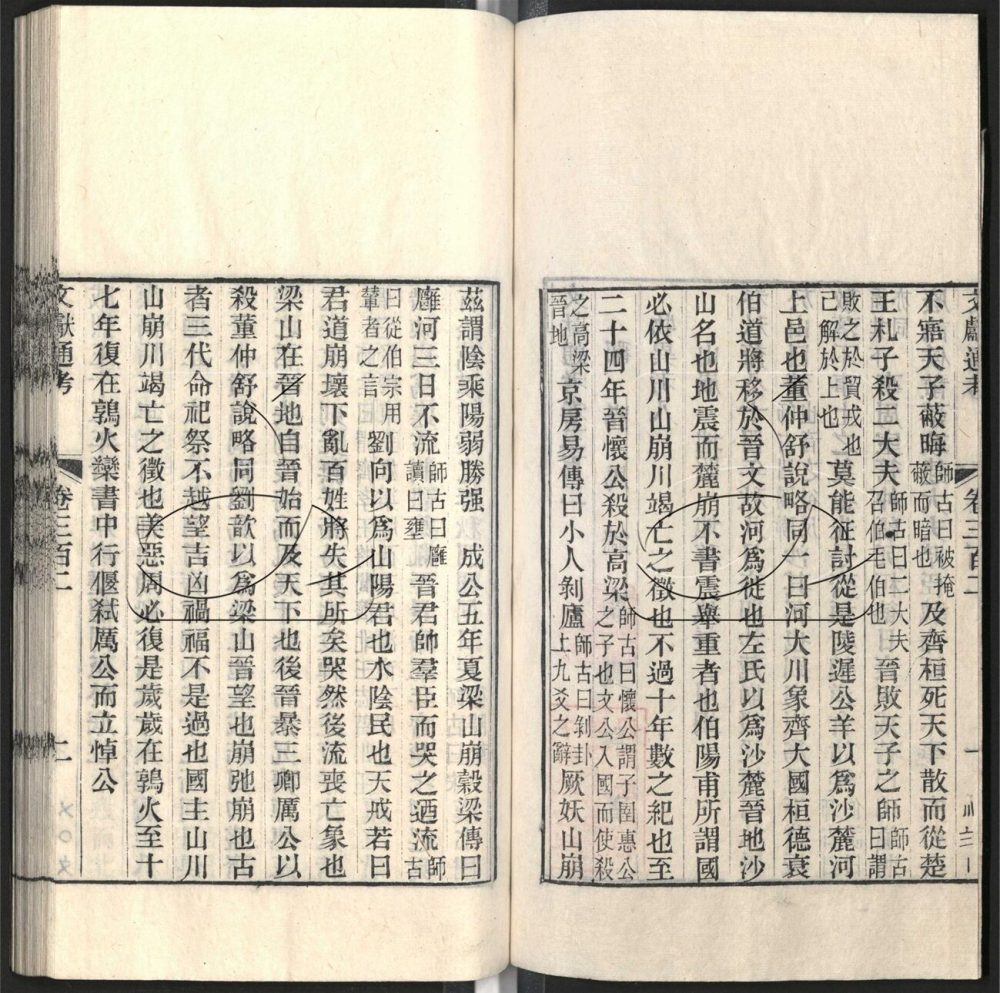 文獻通考　卷三百二
不寤天子蔽晦師古曰被掩蔽而暗也及齊桓死天下散而從楚
王札子殺二大夫師古曰二大夫召伯毛伯也晉敗天子之師師古曰謂
敗之於貿戎也己解於上也莫能征討從是陵遲公羊以爲沙麓河
上邑也董仲舒說略同一曰河大川象齊大國桓德衰
伯道將移於晉文故河爲徙也左氏以爲沙麓晉地沙
山名也地震而麓崩不書震舉重者也伯陽甫所謂國
必依山川山崩川竭亡之徵也不過十年數之紀也至
二十四年晉懷公殺於高梁師古曰懷公謂子圉惠公之子也文公入國而使殺
之高梁晉地京房易傳曰小人剝廬師古曰剝卦上九爻之辭厥妖山崩
茲謂陰乘陽弱勝强　成公五年夏梁山崩穀梁傳曰
廱河三日不流師古曰廱讀曰壅晉君帥羣臣而哭之迺流師古
曰從伯宗用輦者之言劉向以爲山陽君也水陰民也天戒若曰
君道崩壞下亂百姓將失其所矣哭然後流喪亡象也
梁山在晉地自晉始而及天下也後晉暴三卿厲公以
殺董仲舒說略同劉歆以爲梁山晉望也崩弛崩也古
者三代命祀祭不越望吉凶禍福不是過也國主山川
山崩川竭亡之徵也美惡周必復是歲歲在鶉火至十
七年復在鶉火欒書中行偃弑厲公而立悼公
文獻通考　卷三百二